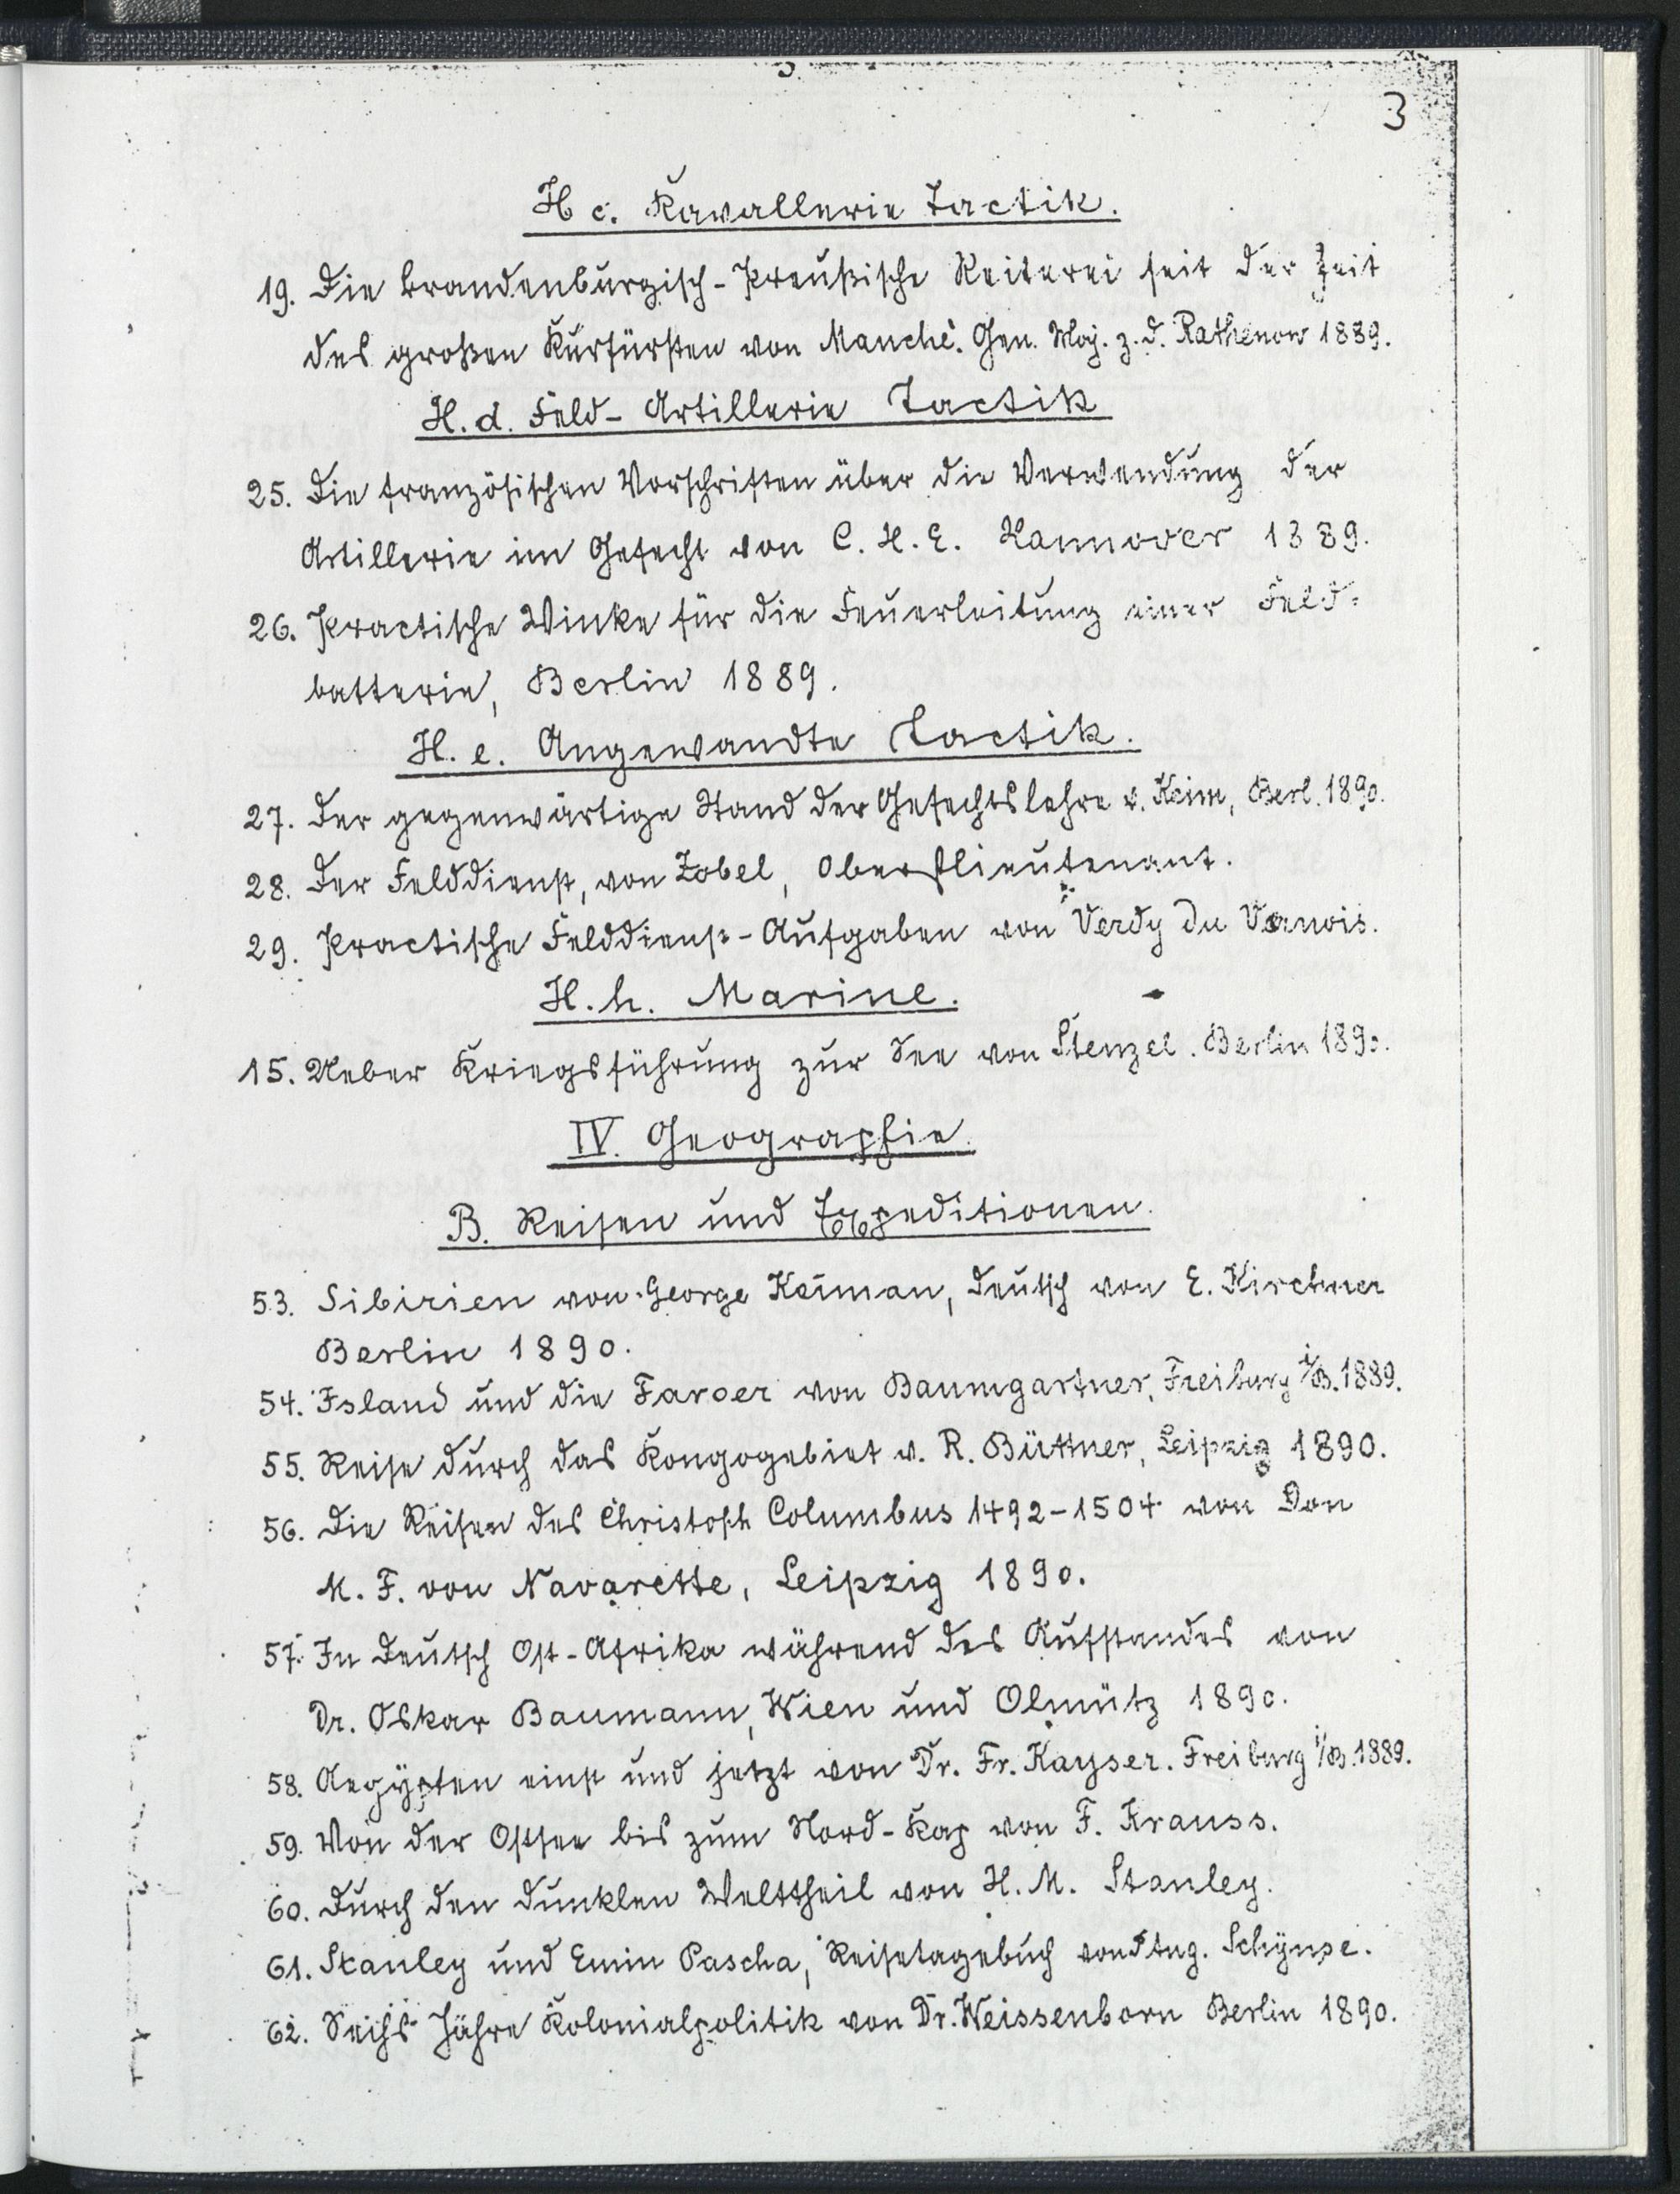 3
H c. Kavallerie Tactik.
19. Die Brandenburgisch-Preußische Reiterei seit der Zeit
des großen Kurfürsten von Manché. Gen. Maj. z. d. Rathenow 1889.
H. d. Feld-Artillerie Tactik
25. Die französischen Vorschriften über die Verwendung der
Artillerie im Gefecht von C. H. E. Hannover 1889.
26. Practische Winke für die Feuerleitung einer Feld-
batterie, Berlin 1889.
H. e. Angewandte Tactik.
27. Der gegenwärtige Stand der Gefechtslehre v. Keim, Berl. 1890.
28. Der Felddienst, von Zobel, Oberstlieutenant.
29. Practische Felddienst-Aufgaben von Verdy du Vernois.
H. h. Marine.
15. Ueber Kriegsführung zur See von Stenzel. Berlin 1890.
IV. Geographie.
B. Reisen und Expeditionen.
53. Sibirien von George Keiman, deutsch von E. Kirchner
Berlin 1890.
54. Island und die Faroer von Baumgartner, Freiburg i/B. 1889.
55. Reise durch das Kongogebiet v. R. Büttner, Leipzig 1890.
56. Die Reisen des Christoph Columbus 1492-1504 von Don
M. F. von Navarette, Leipzig 1890.
57. In Deutsch Ost-Afrika während des Aufstandes von
Dr. Oskar Baumann, Wien und Olmütz 1890.
58. Aegypten einst und jetzt von Dr. Fr. Kayser. Freiburg i/B. 1889.
59. Von der Ostsee bis zum Nord-Kap von F. Krauss.
60. Durch den dunklen Welttheil von H. M. Stanley.
61. Stanley und Emin Pascha, Reisetagebuch von Aug. Schynse.
62. Sechs Jahre Kolonialpolitik von Dr. Weissenborn Berlin 1890.